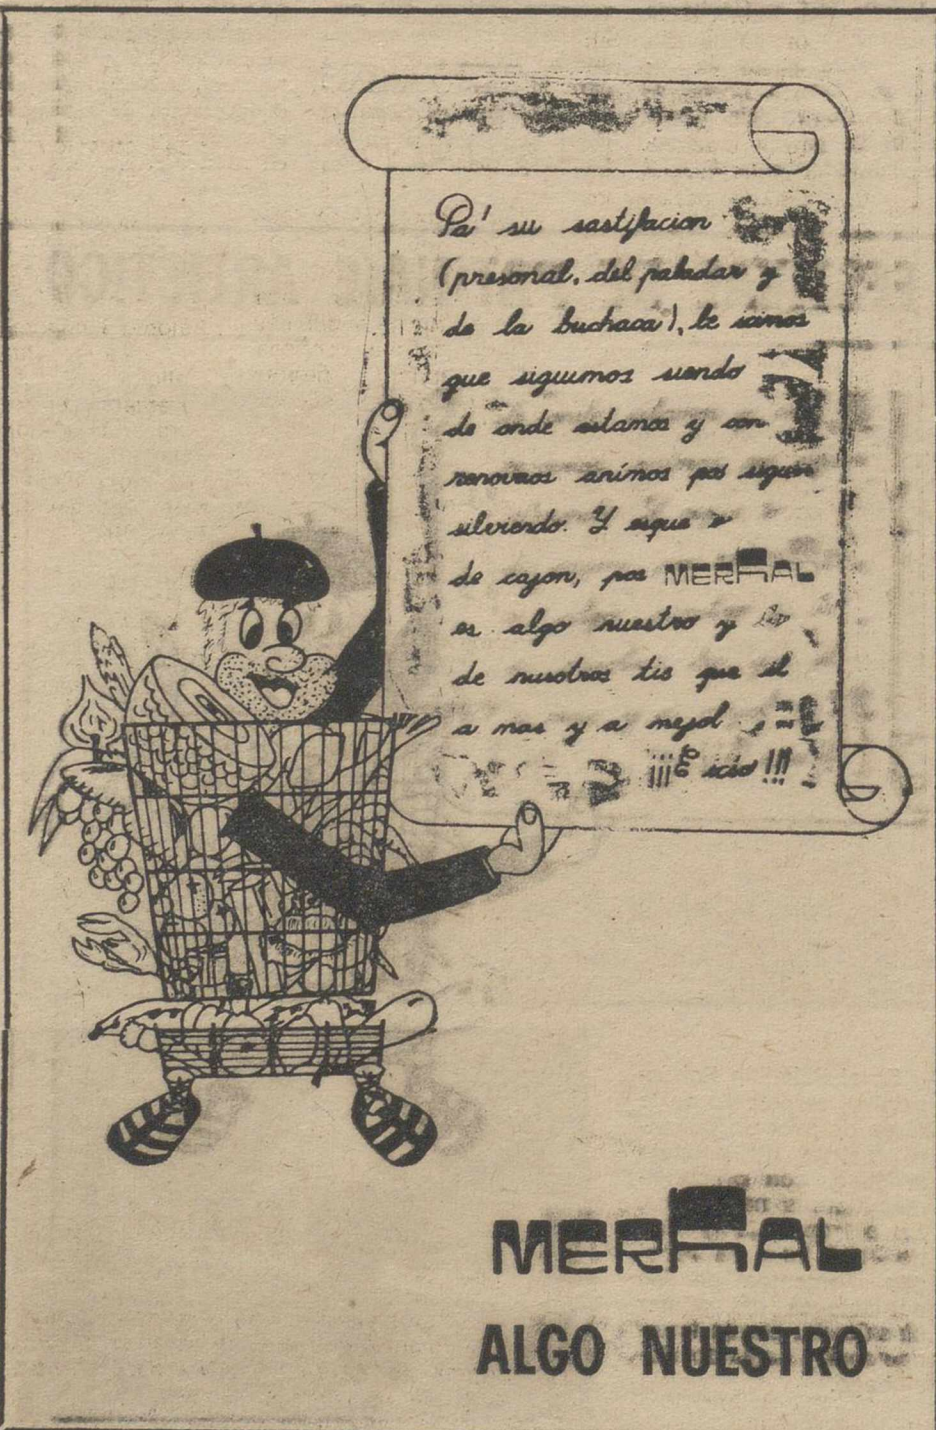 Pa' su sastifacion
(presonal, del paladar y
de la buchaca), le
que siguimos siendo
de onde estamos y con
renovaos animos pa
silviendo. Y esque
de cajon, pos MERKAL
es algo nuestro y
de nusotros tie que il
a mas y a mejol
¡¡¡E icio!!!
MERKAL
ALGO NUESTRO